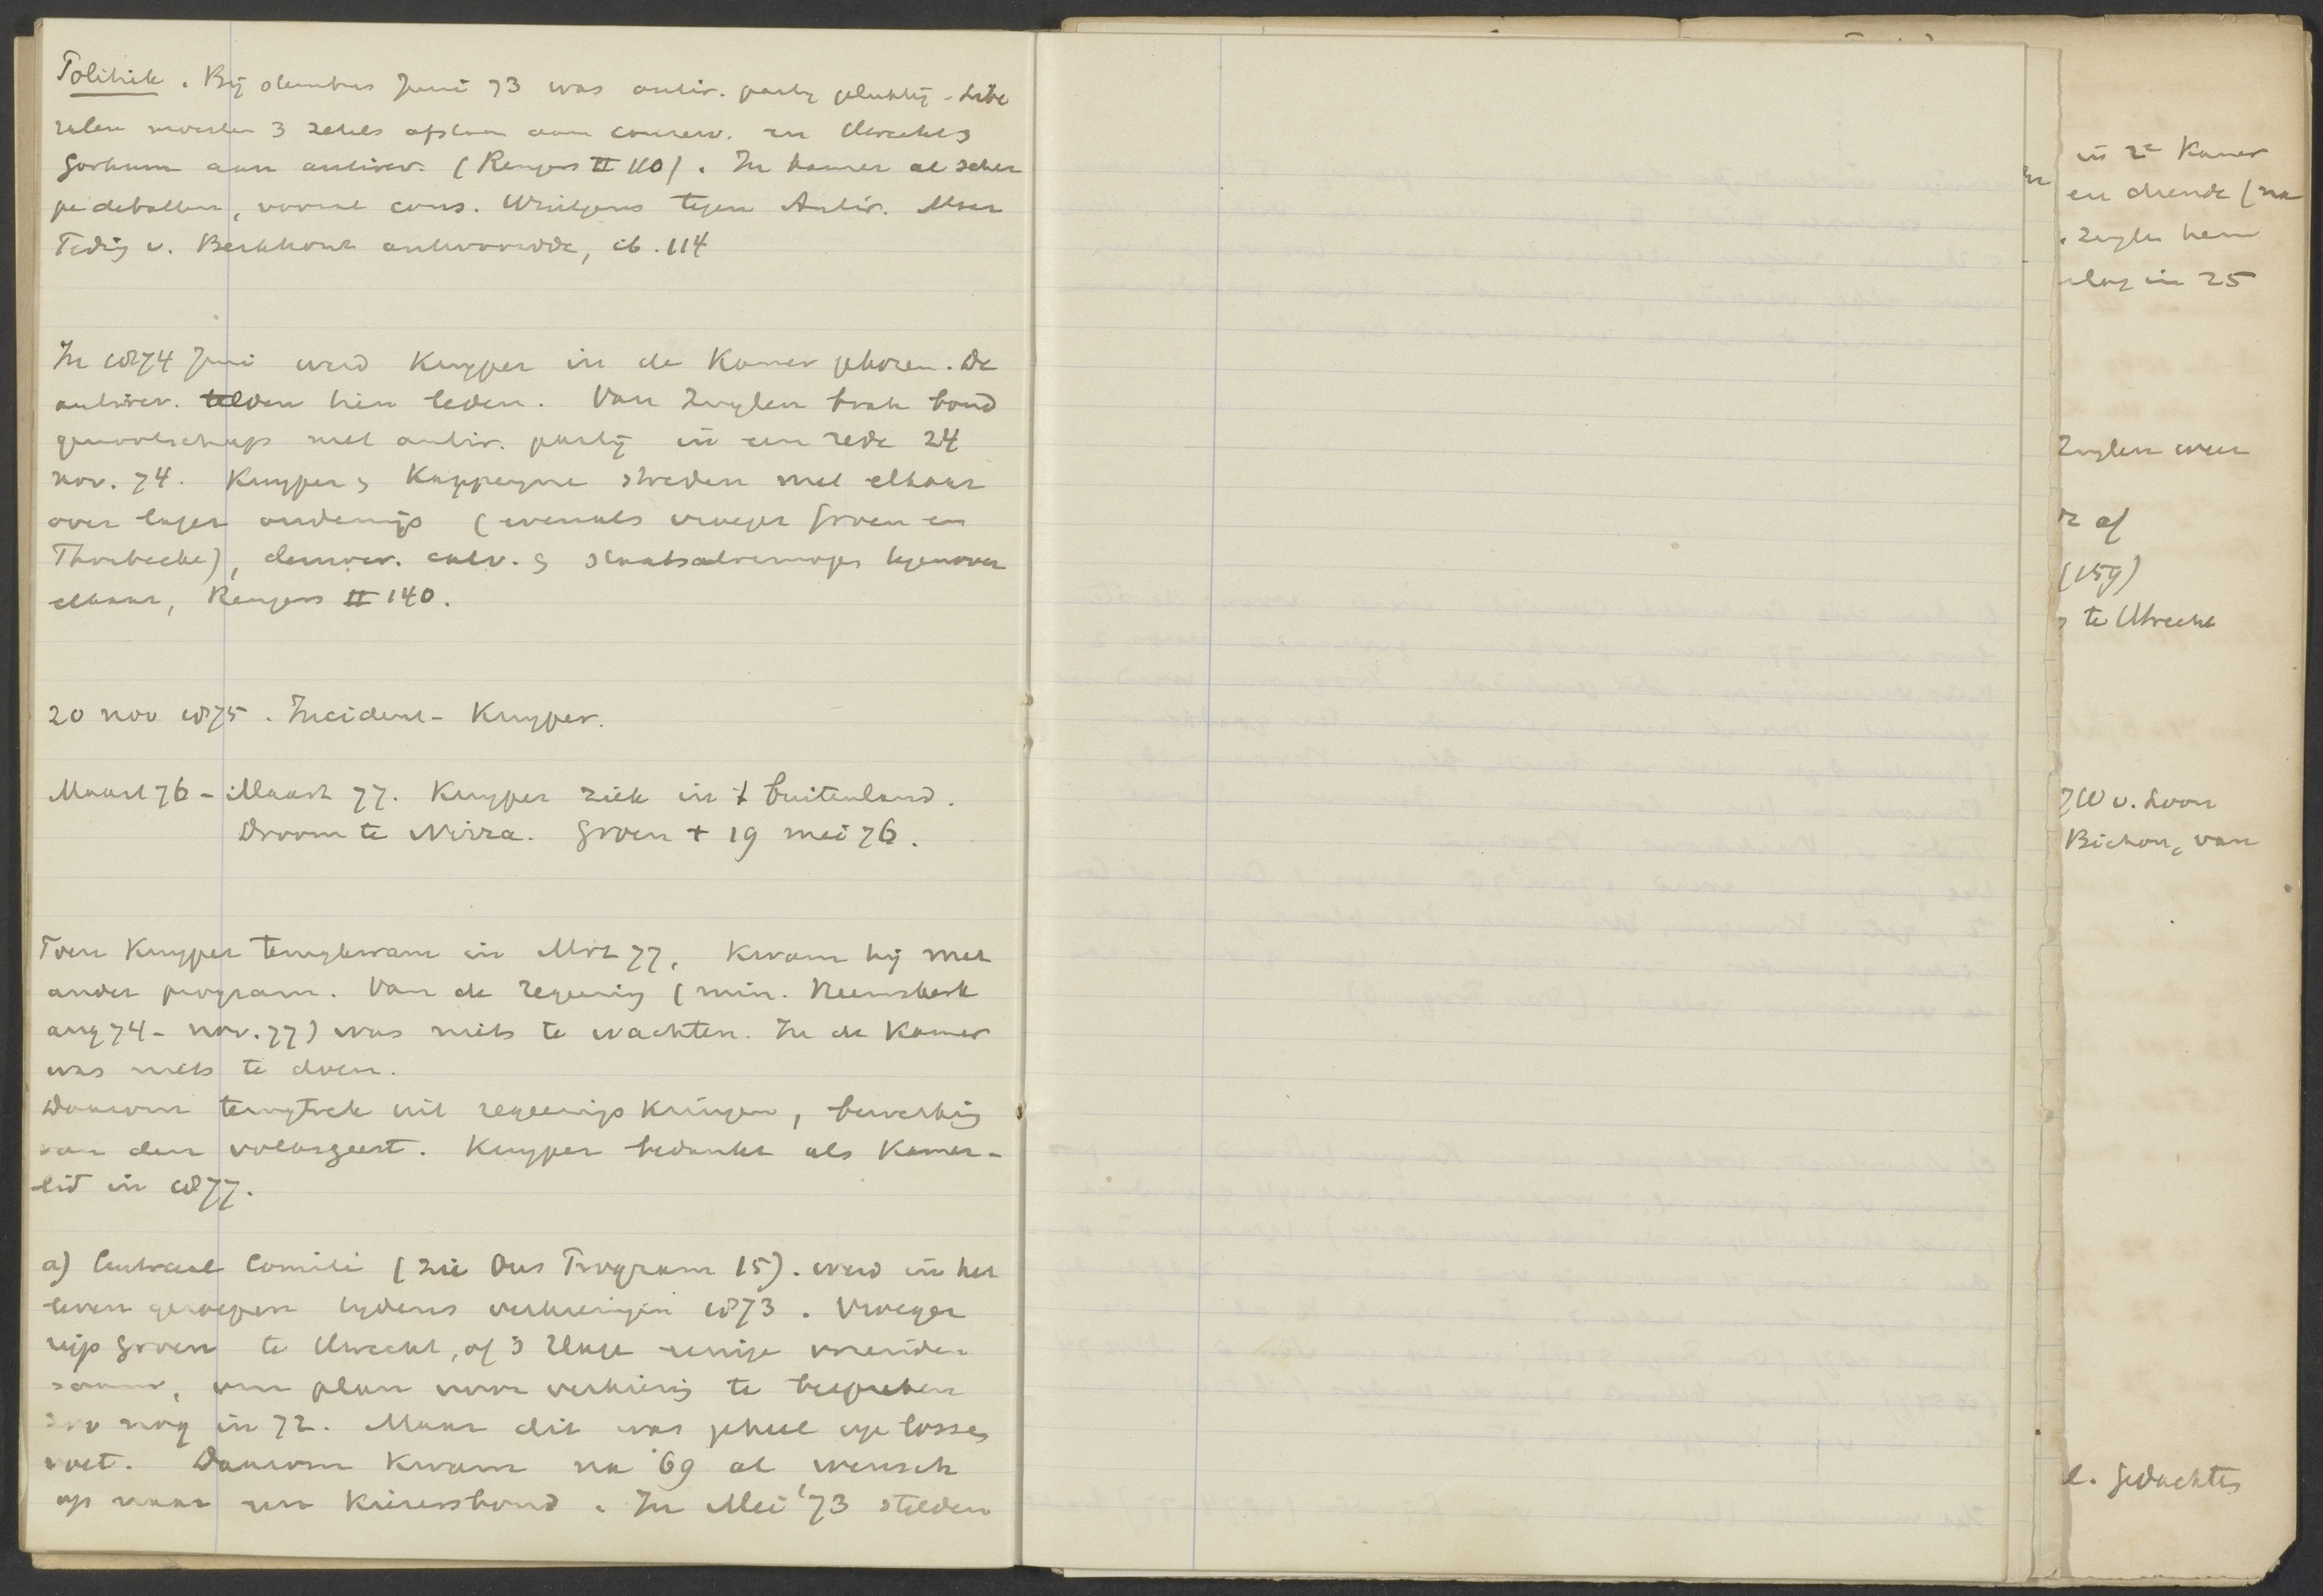 Politiek. Bij stembus Juni 73 was antir. partij gelukkig - Libe
ralen moesten 3 zetels afstaan aan conserv. en Utrecht &
Gorkum aan antirev. (Rengers II 110). In kamer al scher
pe debatten, vooral cons. Wintgens tegen Antir. Maar
Teding v. Berkhout antwoordde, ib. 114
In 1874 Juni werd Kuyper in de Kamer gekozen. De
antirev. telden tien leden. Van Zuylen brak bond
genootschap met antir. partij in een rede 24
nov. 74. Kuyper & Kappeyne streden met elkaar
over lager onderwijs (evenals vroeger Groen en
Thorbecke), democr. calv. & staatsalvermogen tegenover
elkaar, Rengers II 140.
20 nov 1875. Incident-Kuyper.
Maart 76 - Maart 77. Kuyper ziek in 't buitenland.
Droom te Nizza. Groen + 19 mei 76.
Toen Kuyper terugkwam in Mrt 77, kwam hij met
ander program. Van de regeering (min. Heemskerk
aug 74 - nov. 77) was niets te wachten. In de Kamer
was niets te doen.
Daarom terugtrek uit regeerings kringen, bewerking
van den volksgeest. Kuyper bedankt als Kamer-
lid in 1877.
a) Centraal Comité (zie Ons Program 15). werd in het
leven geroepen tijdens verkiezingen 1873. Vroeger
riep Groen te Utrecht, of 's Hage eenige vrienden
saam, om plan voor verkiezing te bespreken
zoo nog in 72. Maar dit was geheel op losse
voet. Daarom kwam na '69 al wensch
op naar een Kiezersbond. In Mei '73 stelden
in 2e Kamer
en drende (na
. Zuylen hem
slag in 25
Zuylen weer
af
(159)
te Utrecht
JW v. Loon
Bichon, van
l. gedachte